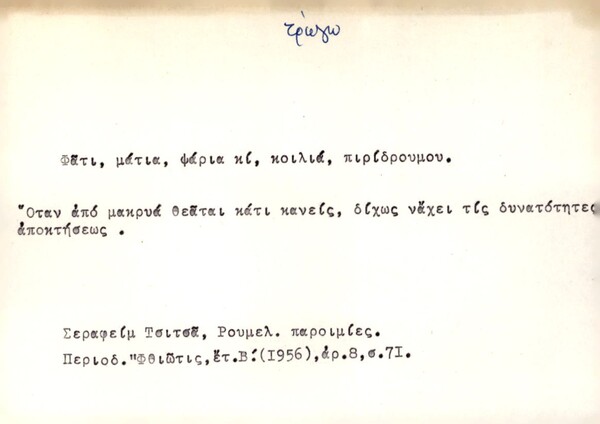 τρώγω
Φᾶτι, μάτια, ψάρια κί, κοιλιά, πιρίδρουμου.
Ὅταν ἀπό μακρυά θεᾶται κάτι κανείς, δίχως νἄχει τίς δυνατότητες
ἀποκτήσεως .
Σεραφείμ Τσιτσᾶ, Ρουμελ. παροιμίες.
Περιοδ."Φθιῶτις,ἔτ.Β΄.(1956),ἀρ.8,σ.71.